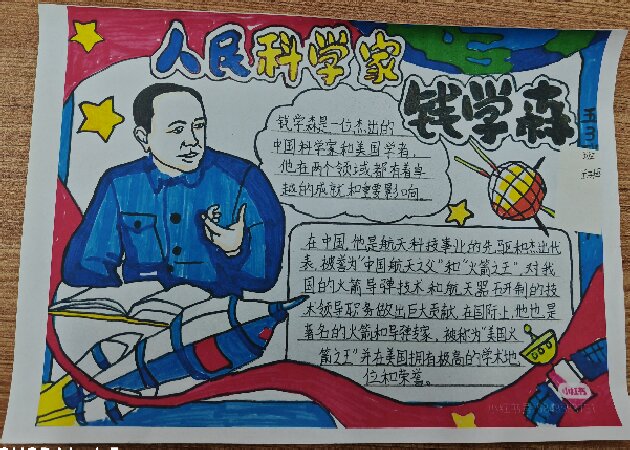 人民科学家
钱学森
五3
班
钱学森是一位杰出的
中国科学家和美国学者,
他在两个领域都有着卓
越的成就和重要影响。
在中国,他是航天科技事业的先驱和杰出代
表,被誉为“中国航天之父”和“火箭之王”,对我
国的火箭导弹技术和航天器研制的技
术领导职务做出巨大贡献,在国际上,他也是
著名的火箭和导弹专家,被称为“美国火
箭之王”并在美国拥有极高的学术地
位和荣誉。
小红书